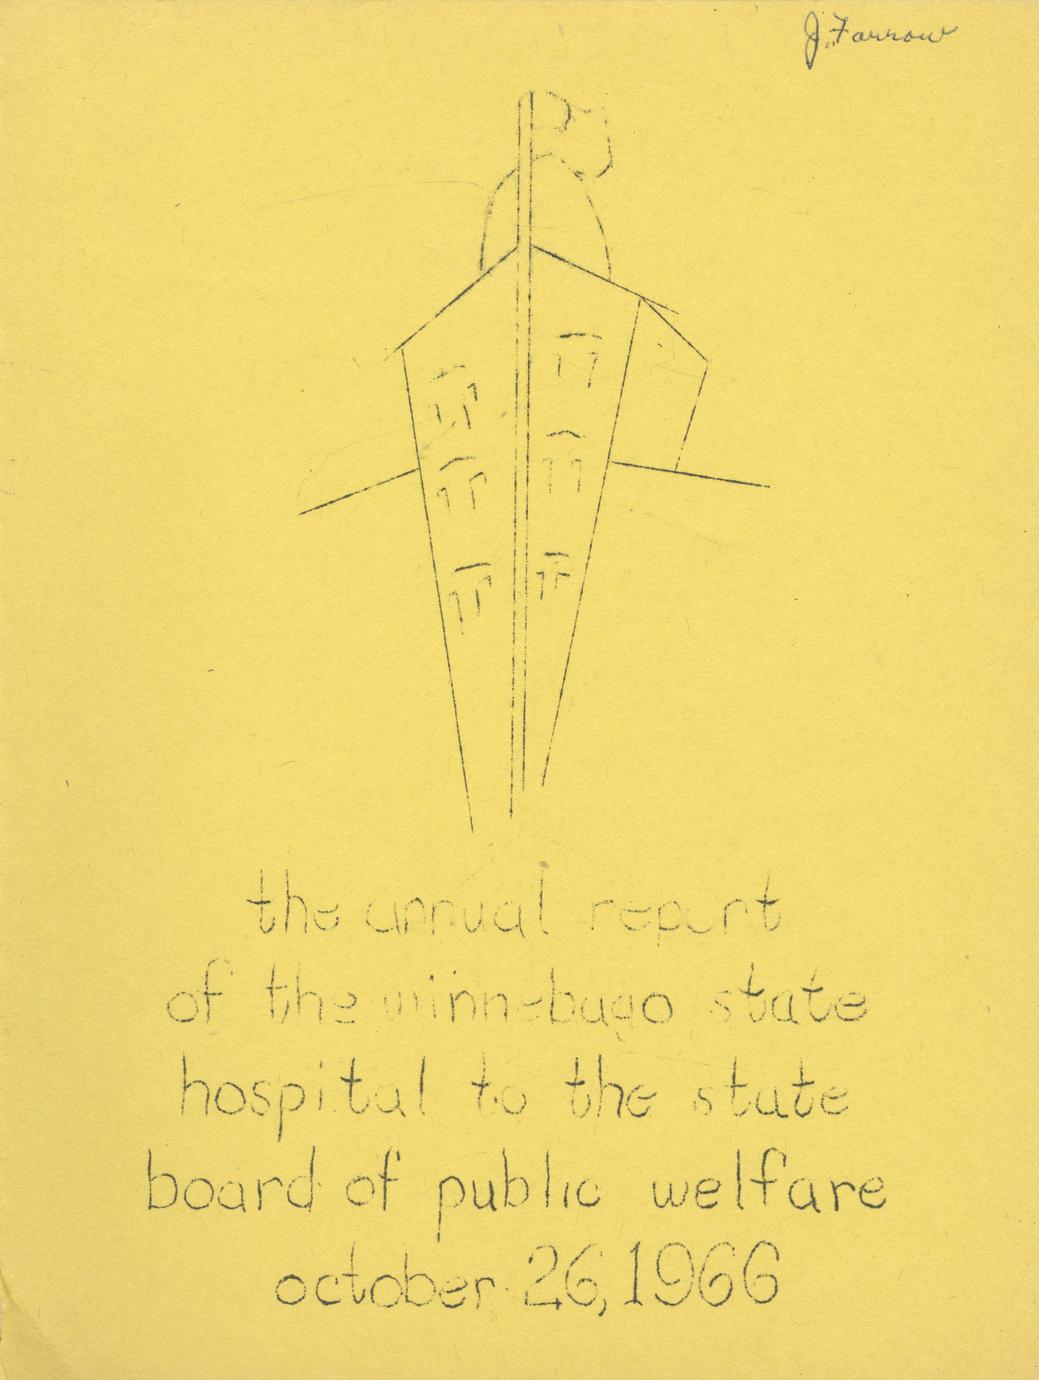 J. Farrow
the annual report
of the winnebago state
hospital to the state
board of public welfare
october 26, 1966